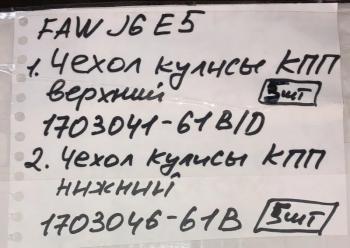 FAW J6 E5
1. Чехол кулисы КПП
верхний 5шт
1703041-61B/D
2. Чехол кулисы КПП
нижний
1703046-61B 5шт